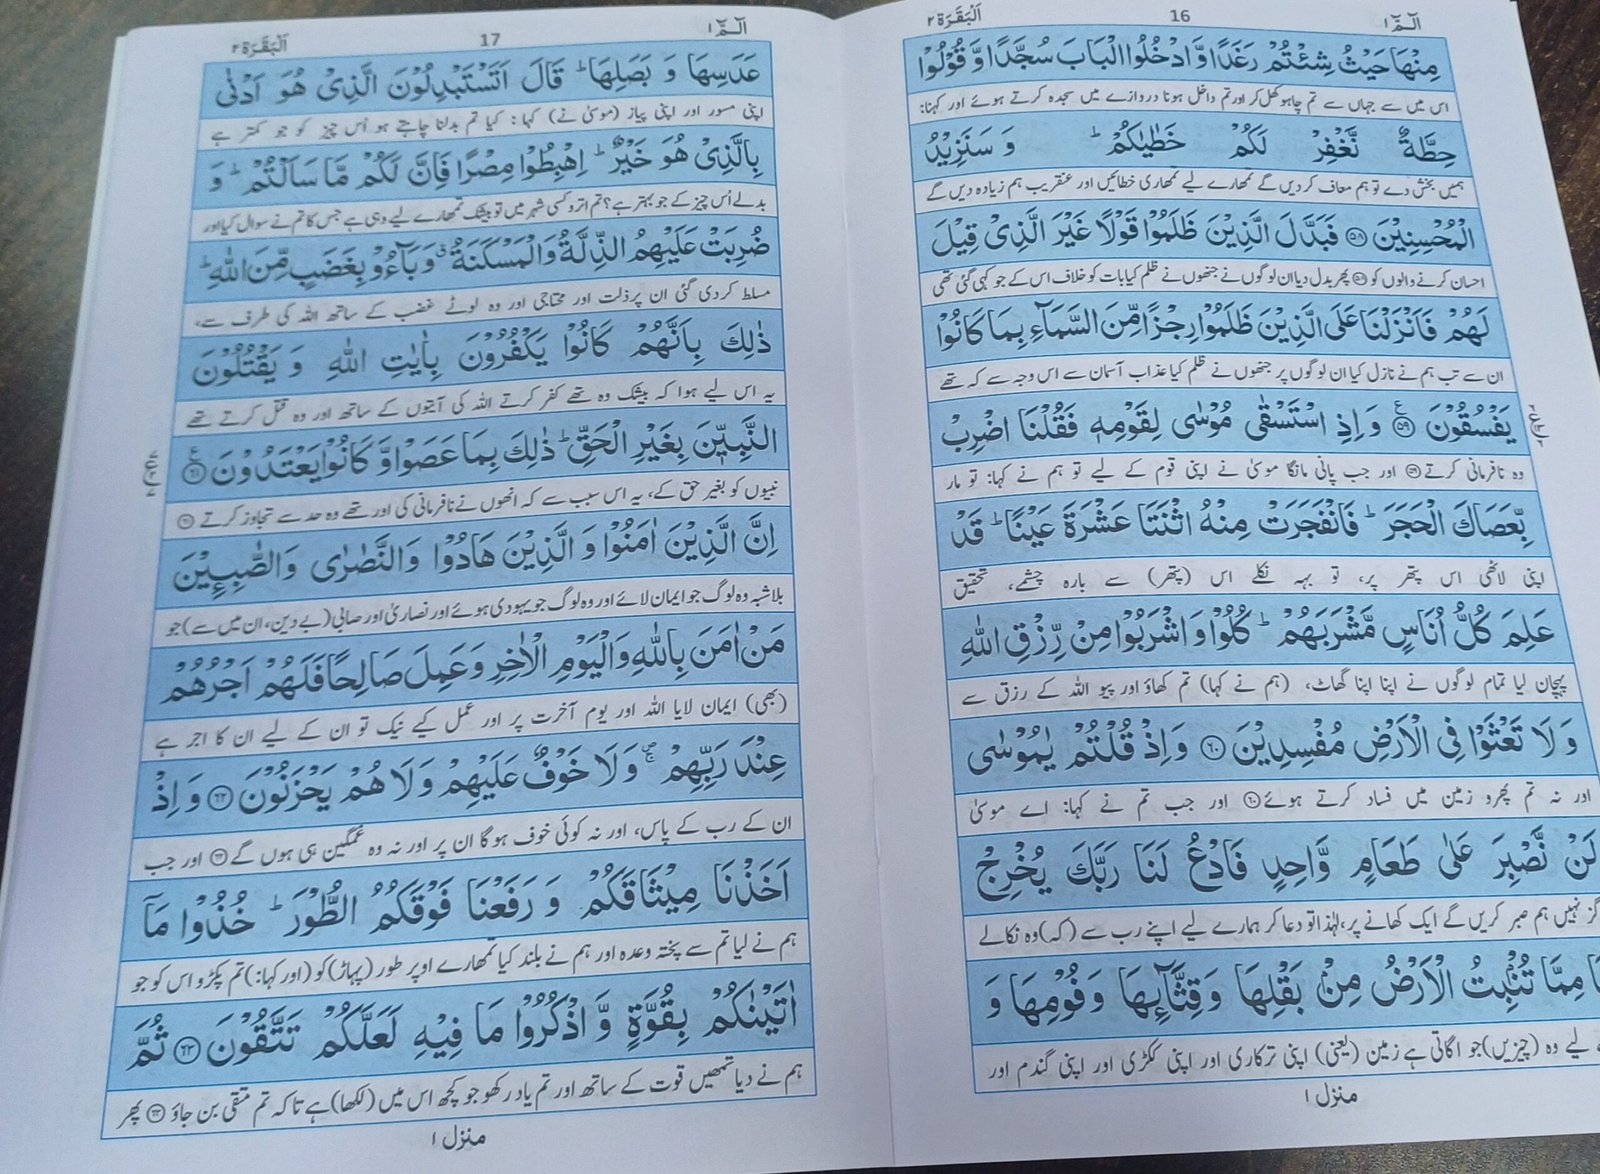 الٓـمّٓ ١
16
اَلْبَقَرَة ٢
مِنْهَا حَيْثُ شِئْتُمْ رَغَدًا وَّ ادْخُلُوا الْبَابَ سُجَّدًا وَّ قُوْلُوْا
اس میں سے جہاں سے تم چاہو کھل کر اور تم داخل ہونا دروازے میں سجدہ کرتے ہوئے اور کہنا:
حِطَّةٌ نَّغْفِرْ لَكُمْ خَطٰيٰكُمْ ؕ وَ سَنَزِيْدُ
ہمیں بخش دے تو ہم معاف کر دیں گے تمھارے لیے تمھاری خطائیں اور عنقریب ہم زیادہ دیں گے
الْمُحْسِنِيْنَ ۝٥٨ فَبَدَّلَ الَّذِيْنَ ظَلَمُوْا قَوْلًا غَيْرَ الَّذِىْ قِيْلَ
احسان کرنے والوں کو ۝٥٨ پھر بدل دیا ان لوگوں نے جنھوں نے ظلم کیا بات کو خلاف اس کے جو کہی گئی تھی
لَهُمْ فَاَنْزَلْنَا عَلَى الَّذِيْنَ ظَلَمُوْا رِجْزًا مِّنَ السَّمَآءِ بِمَا كَانُوْا
ان سے تب ہم نے نازل کیا ان لوگوں پر جنھوں نے ظلم کیا عذاب آسمان سے اس وجہ سے کہ تھے
يَفْسُقُوْنَ ۝٥٩ وَ اِذِ اسْتَسْقٰى مُوْسٰى لِقَوْمِهٖ فَقُلْنَا اضْرِبْ
وہ نافرمانی کرتے ۝٥٩ اور جب پانی مانگا موسیٰ نے اپنی قوم کے لیے تو ہم نے کہا: تو مار
بِّعَصَاكَ الْحَجَرَ ؕ فَانْفَجَرَتْ مِنْهُ اثْنَتَا عَشْرَةَ عَيْنًا ؕ قَدْ
اپنی لاٹھی اس پتھر پر، تو بہہ نکلے اس (پتھر) سے بارہ چشمے، تحقیق
عَلِمَ كُلُّ اُنَاسٍ مَّشْرَبَهُمْ ؕ كُلُوْا وَ اشْرَبُوْا مِنْ رِّزْقِ اللّٰهِ
پہچان لیا تمام لوگوں نے اپنا اپنا گھاٹ، (ہم نے کہا) تم کھاؤ اور پیو اللہ کے رزق سے
وَ لَا تَعْثَوْا فِى الْاَرْضِ مُفْسِدِيْنَ ۝٦٠ وَ اِذْ قُلْتُمْ يٰمُوْسٰى
اور نہ تم پھرو زمین میں فساد کرتے ہوئے ۝٦٠ اور جب تم نے کہا: اے موسیٰ
لَنْ نَّصْبِرَ عَلٰى طَعَامٍ وَّاحِدٍ فَادْعُ لَنَا رَبَّكَ يُخْرِجْ
نہیں ہم صبر کریں گے ایک کھانے پر، لہٰذا تو دعا کر ہمارے لیے اپنے رب سے (کہ) وہ نکالے
مِمَّا تُنْۢبِتُ الْاَرْضُ مِنْۢ بَقْلِهَا وَ قِثَّآىِٕهَا وَ فُوْمِهَا وَ
لیے وہ (چیزیں) جو اگاتی ہے زمین (یعنی) اپنی ترکاری اور اپنی ککڑی اور اپنی گندم اور
منزل ١
الٓـمّٓ ١
17
اَلْبَقَرَة ٢
عَدَسِهَا وَ بَصَلِهَا ؕ قَالَ اَتَسْتَبْدِلُوْنَ الَّذِىْ هُوَ اَدْنٰى
اپنی مسور اور اپنی پیاز (موسیٰ نے) کہا: کیا تم بدلنا چاہتے ہو اُس چیز کو جو کمتر ہے
بِالَّذِىْ هُوَ خَيْرٌ ؕ اِهْبِطُوْا مِصْرًا فَاِنَّ لَكُمْ مَّا سَاَلْتُمْ ؕ وَ
بدلے اُس چیز کے جو بہتر ہے؟ تم اترو کسی شہر میں تو بیشک تمھارے لیے وہی ہے جس کا تم نے سوال کیا اور
ضُرِبَتْ عَلَيْهِمُ الذِّلَّةُ وَ الْمَسْكَنَةُ ۗ وَ بَآءُوْ بِغَضَبٍ مِّنَ اللّٰهِ ؕ
مسلط کر دی گئی ان پر ذلت اور محتاجی اور وہ لوٹے غضب کے ساتھ اللہ کی طرف سے،
ذٰلِكَ بِاَنَّهُمْ كَانُوْا يَكْفُرُوْنَ بِاٰيٰتِ اللّٰهِ وَ يَقْتُلُوْنَ
یہ اس لیے ہوا کہ بیشک وہ تھے کفر کرتے اللہ کی آیتوں کے ساتھ اور وہ قتل کرتے تھے
النَّبِيّٖنَ بِغَيْرِ الْحَقِّ ؕ ذٰلِكَ بِمَا عَصَوْا وَّ كَانُوْا يَعْتَدُوْنَ ۝٦١
نبیوں کو بغیر حق کے، یہ اس سبب سے کہ انھوں نے نافرمانی کی اور تھے وہ حد سے تجاوز کرتے ۝٦١
اِنَّ الَّذِيْنَ اٰمَنُوْا وَ الَّذِيْنَ هَادُوْا وَ النَّصٰرٰى وَ الصّٰبِـِٕيْنَ
بلاشبہ وہ لوگ جو ایمان لائے اور وہ لوگ جو یہودی ہوئے اور نصاریٰ اور صابی (بے دین، ان میں سے) جو
مَنْ اٰمَنَ بِاللّٰهِ وَ الْيَوْمِ الْاٰخِرِ وَ عَمِلَ صَالِحًا فَلَهُمْ اَجْرُهُمْ
(بھی) ایمان لایا اللہ اور یوم آخرت پر اور عمل کیے نیک تو ان کے لیے ان کا اجر ہے
عِنْدَ رَبِّهِمْ ۪ۚ وَ لَا خَوْفٌ عَلَيْهِمْ وَ لَا هُمْ يَحْزَنُوْنَ ۝٦٢ وَ اِذْ
ان کے رب کے پاس، اور نہ کوئی خوف ہو گا ان پر اور نہ وہ غمگین ہی ہوں گے ۝٦٢ اور جب
اَخَذْنَا مِيْثَاقَكُمْ وَ رَفَعْنَا فَوْقَكُمُ الطُّوْرَ ؕ خُذُوْا مَآ
ہم نے لیا تم سے پختہ وعدہ اور ہم نے بلند کیا تمھارے اوپر طور (پہاڑ) کو (اور کہا:) تم پکڑو اس کو جو
اٰتَيْنٰكُمْ بِقُوَّةٍ وَّ اذْكُرُوْا مَا فِيْهِ لَعَلَّكُمْ تَتَّقُوْنَ ۝٦٣ ثُمَّ
ہم نے دیا تمھیں قوت کے ساتھ اور تم یاد رکھو جو کچھ اس میں (لکھا) ہے تاکہ تم متقی بن جاؤ ۝٦٣ پھر
منزل ١